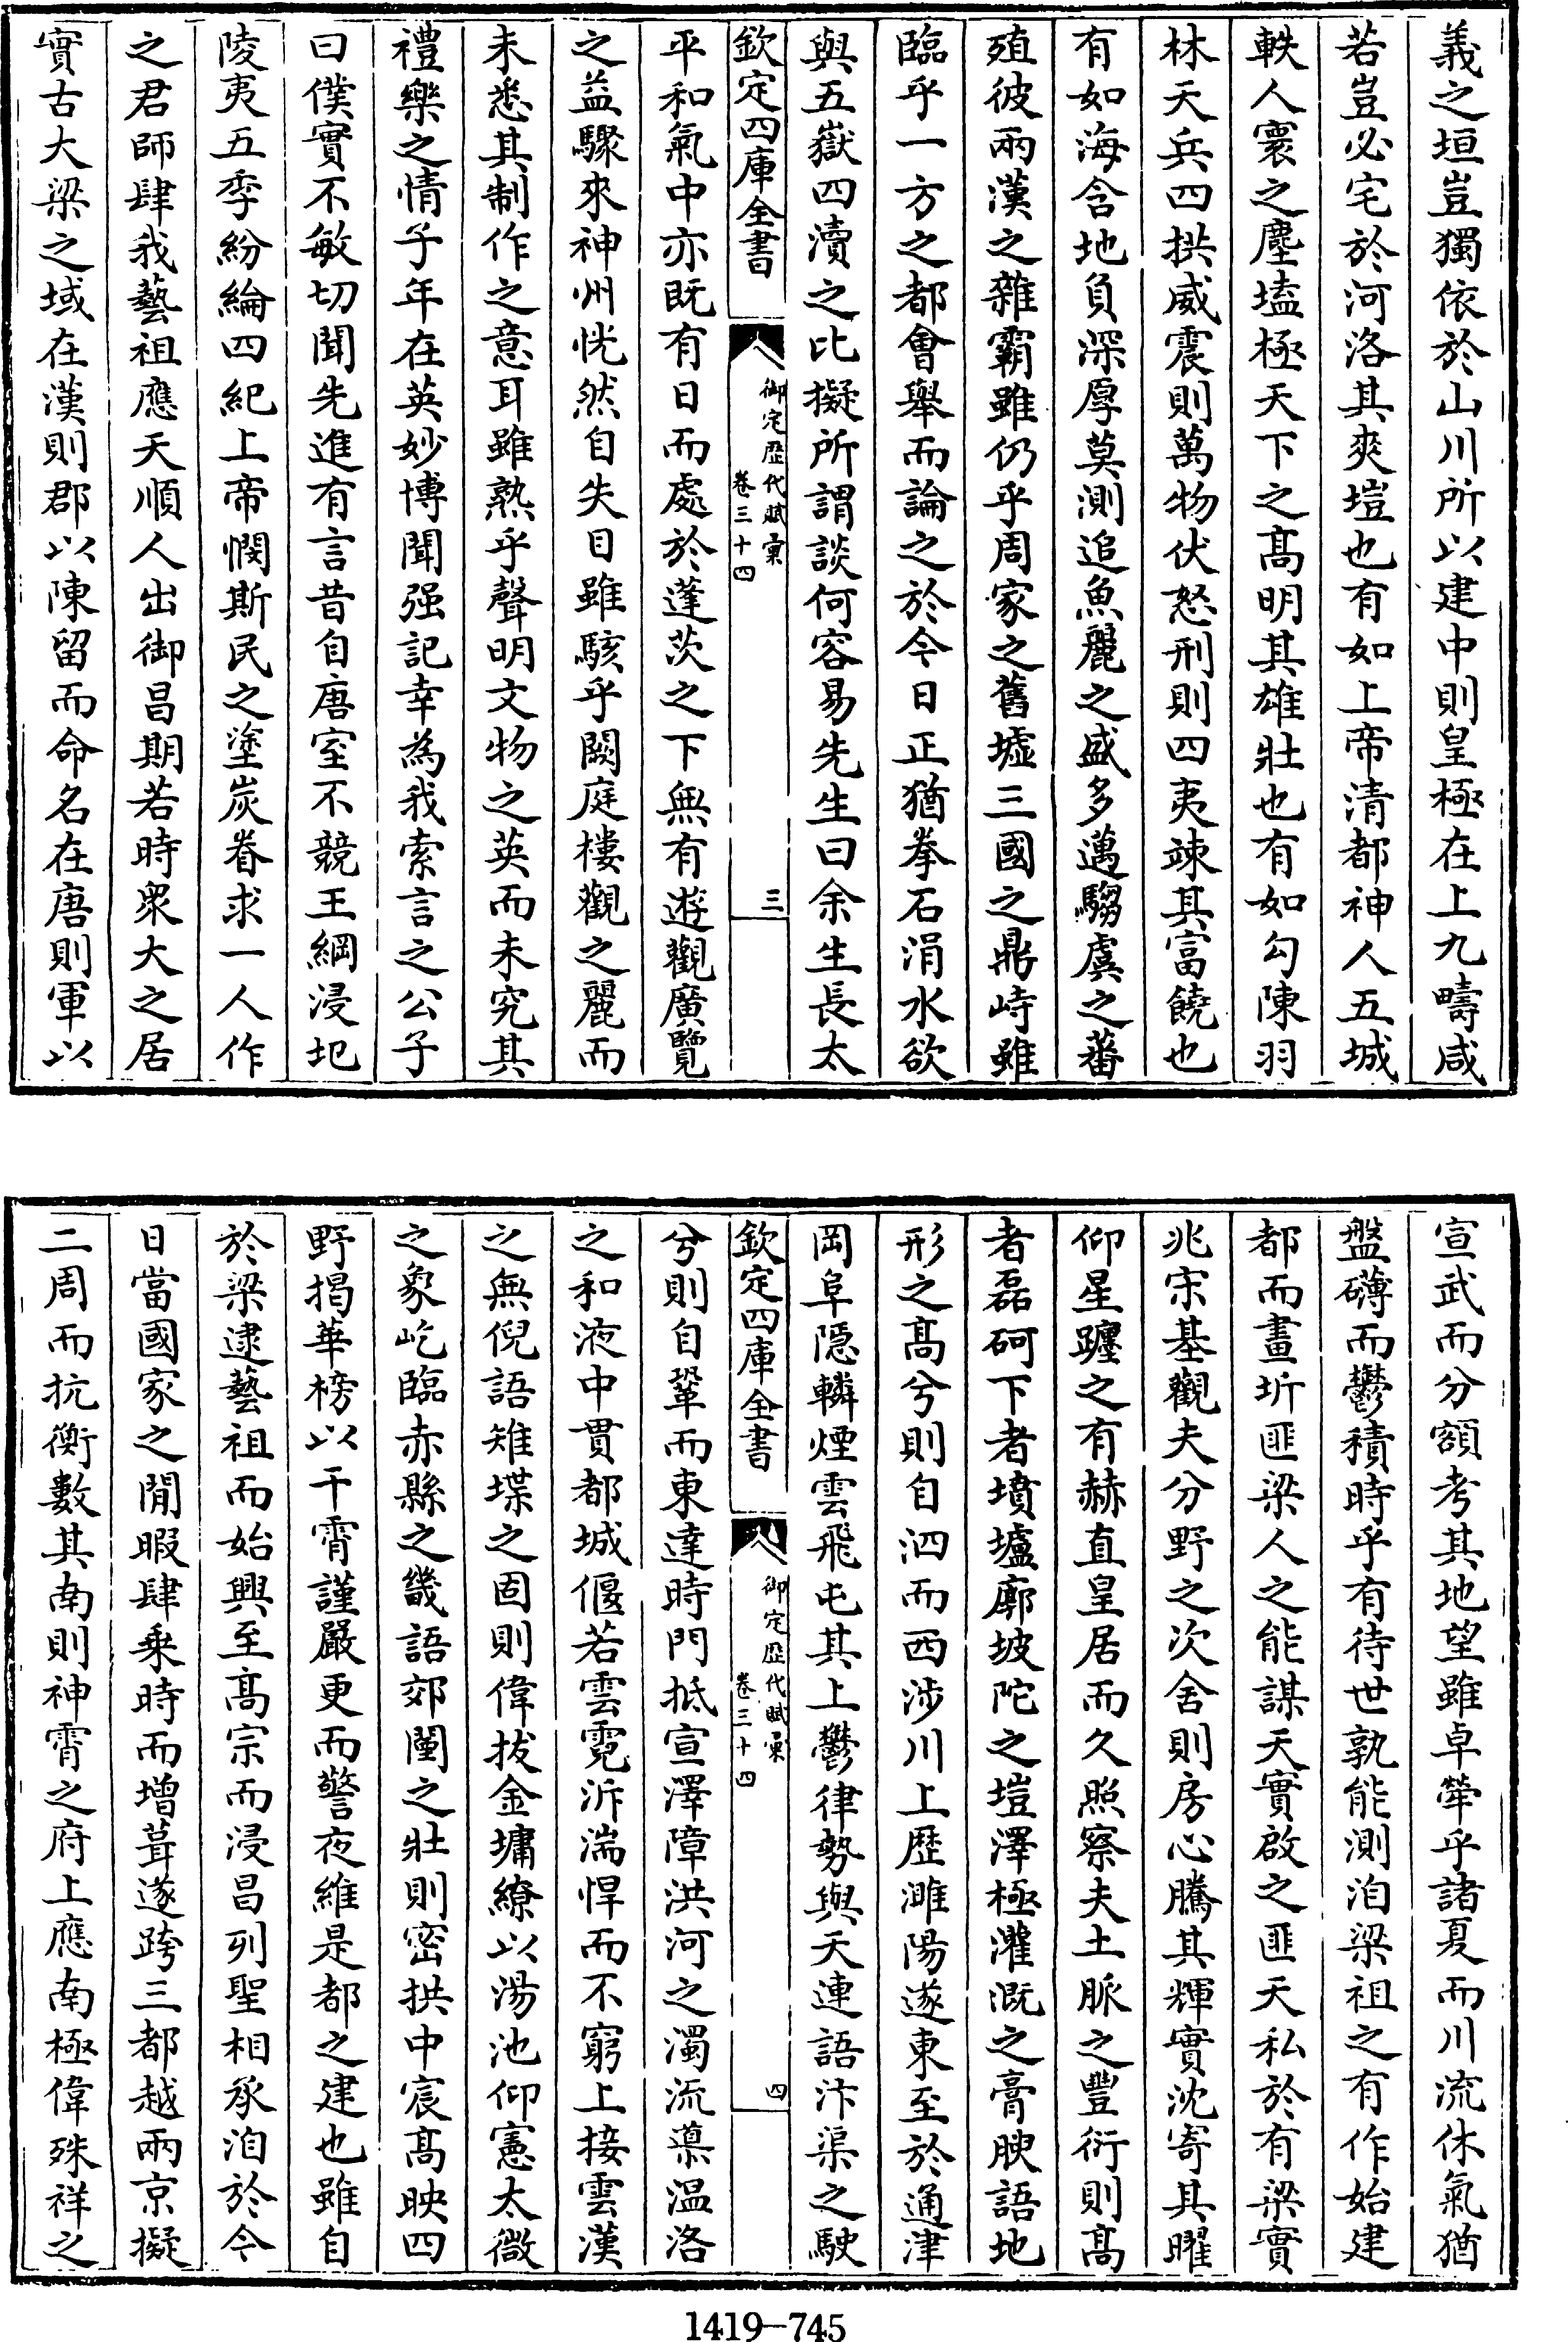 義之垣豈獨依於山川所以建中則皇極在上九疇咸
若豈必宅於河洛其爽塏也有如上帝清都神人五城
軼人寰之塵壒極天下之髙明其雄壯也有如勾陳羽
林天兵四拱威震則萬物伏怒刑則四夷竦其富饒也
有如海含地負深厚莫測追魚麗之盛多邁騶虞之蕃
殖彼兩漢之雜霸雖仍乎周家之舊墟三國之鼎峙雖
臨乎一方之都會舉而論之於今日正猶拳石涓水欲
與五嶽四瀆之比擬所謂談何容易先生曰余生長太
欽定四庫全書
御定歴代賦彚
卷三十四
三
平和氣中亦既有日而處於蓬茨之下無有遊觀廣覽
之益驟來神州恍然自失目雖駭乎闕庭樓觀之麗而
未悉其制作之意耳雖熟乎聲明文物之英而未究其
禮樂之情子年在英妙博聞强記幸為我索言之公子
曰僕實不敏切聞先進有言昔自唐室不競王綱浸圮
陵夷五季紛綸四紀上帝憫斯民之塗炭眷求一人作
之君師肆我藝祖應天順人出御昌期若時衆大之居
實古大梁之域在漢則郡以陳留而命名在唐則軍以
宣武而分額考其地望雖卓犖乎諸夏而川流休氣猶
盤礴而鬱積時乎有待世孰能測洎梁祖之有作始建
都而畫圻匪梁人之能謀天實啟之匪天私於有梁實
兆宋基觀夫分野之次舍則房心騰其輝實沈寄其曜
仰星躔之有赫直皇居而久照察夫土脈之豐衍則髙
者磊砢下者墳壚廓坡陀之塏澤極灌溉之膏腴語地
形之髙兮則自泗而西涉川上歴濉陽遂東至於通津
岡阜隱轔煙雲飛屯其上鬱律勢與天連語汴渠之駛
欽定四庫全書
御定歴代賦彚
卷三十四
四
兮則自鞏而東達時門抵宣澤障洪河之濁流導温洛
之和液中貫都城偃若雲霓泝湍悍而不窮上接雲漢
之無倪語雉堞之固則偉拔金墉繚以湯池仰憲太微
之象屹臨赤縣之畿語郊闉之壯則密拱中宸髙映四
野揭華榜以干霄謹嚴更而警夜維是都之建也雖自
於梁逮藝祖而始興至髙宗而浸昌列聖相承洎於今
日當國家之閒暇肆乘時而增葺遂跨三都越兩京擬
二周而抗衡數其南則神霄之府上應南極偉殊祥之
1419-745